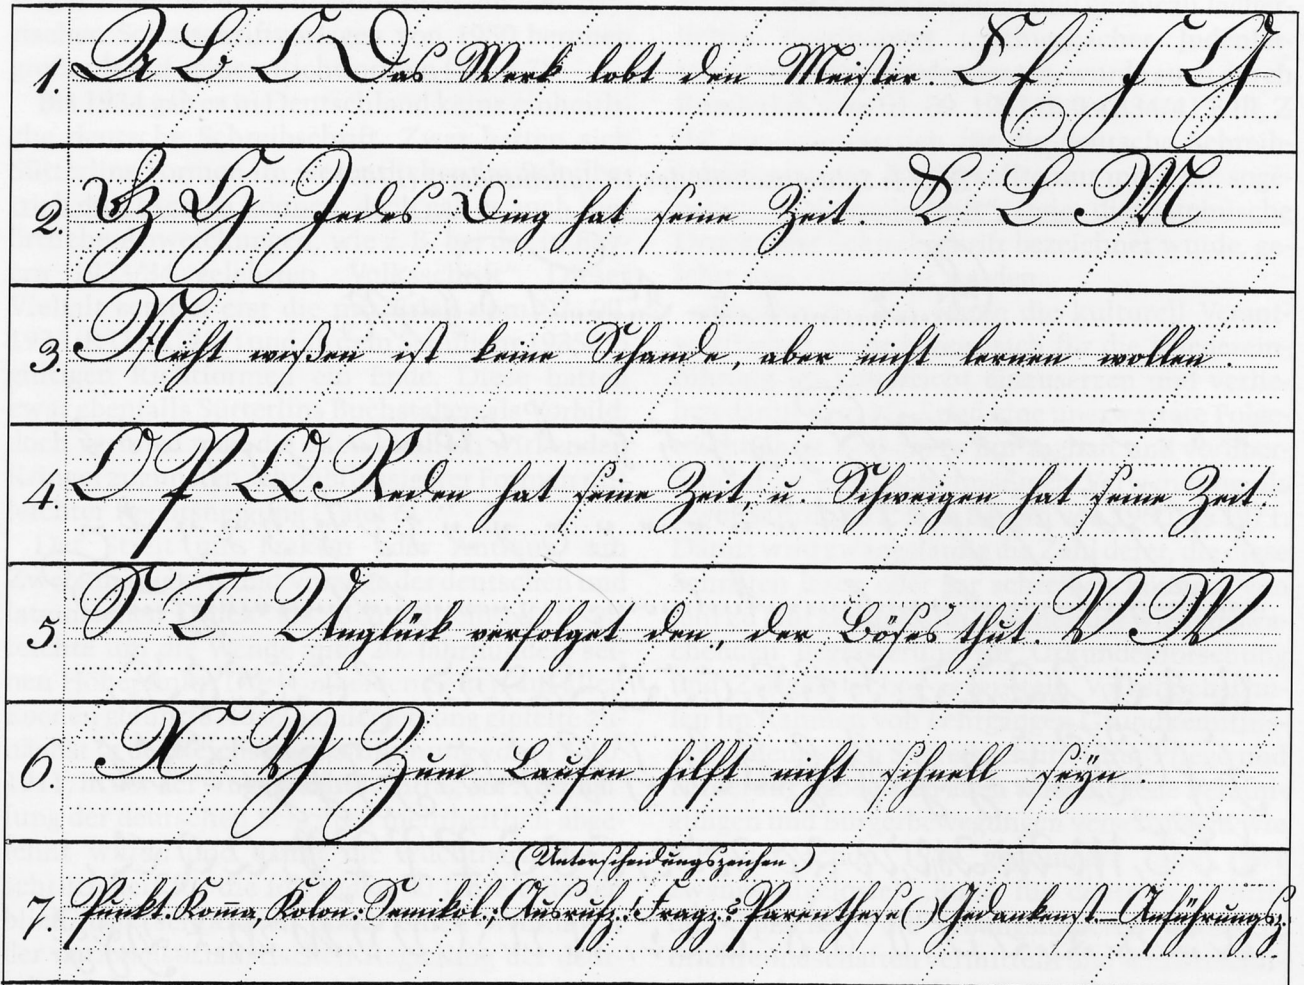 1. A B C Das Werk lobt den Meister. E f F G
2. H H Jedes Ding hat seine Zeit. K L M
3. Nicht wißen ist keine Schande, aber nicht lernen wollen.
4. O P Q Reden hat seine Zeit, u. Schweigen hat seine Zeit.
5. S T Unglück verfolget den, der Böses thut. V W
6. X Y Zum Laufen hilft nicht schnell seyn.
(Unterscheidungszeichen.)
7. Punkt. Kom̄a, Kolon: Semikol.; Ausrufz.! Fragz.? Parenthese ( ) Gedankenst.— Anführungsz.